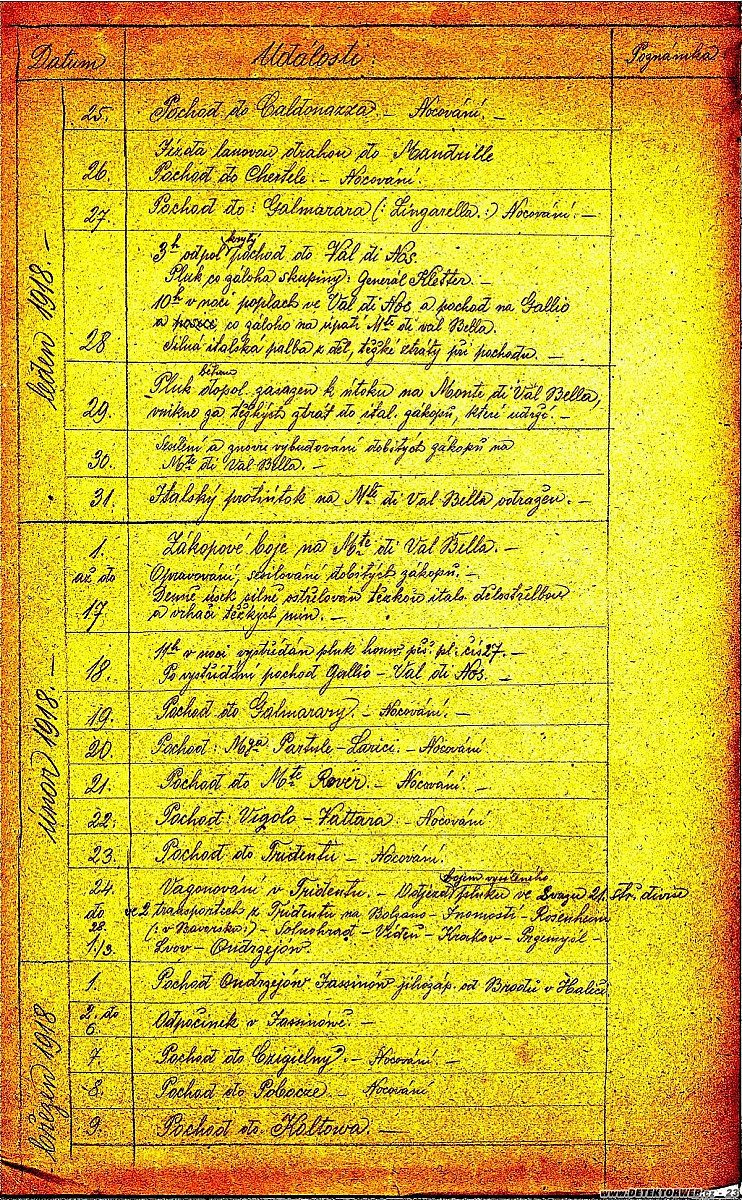 Datum Události: Poznámka
leden 1918. –
25. Pochod do Caldonazza – Nocování. –
Jízda lanovou drahou do Mandrille
26. Pochod do Chertele. – Nocování.
27. Pochod do: Galmarara (: Lingarella.:) Nocování. –
krytý
3h odpol. pochod do Val di Nos.
Pluk co záloha skupiny: Generál Kletter. –
10h v noci poplach ve Val di Nos a pochod na Gallio
a co záloha na úpatí Mte di val Bella.
28 Silná italská palba z děl, těžké ztráty při pochodu. –
během
Pluk dopol. zasazen k útoku na Monte di Val Bella,
29. vnikno za těžkých ztrát do ital. zákopů, které udrží. –
Sesílení a znovu vybudování dobitých zákopů na
30. Mte di Val Bella. –
31. Italský protiútok na Mte di Val Bella odražen. –
únor 1918. –
1. Zákopové boje na Mte di Val Bella. –
až do Opravování, sesilování dobitých zákopů. –
Denně úsek silně ostřelován těžkou itals. dělostřelbou
17. a vrhači těžkých min. –
11h v noci vystřídán pluk honv. pěš. pl. čís 27. –
18. Po vystřídání pochod Gallio – Val di Nos. –
19. Pochod do Galmarary. – Nocování. –
20. Pochod: Mga Partule – Larici. – Nocování
21. Pochod do Mte Rovér. – Nocování. –
22. Pochod: Vigolo – Vattara. – Nocování
23. Pochod do Tridentu – Nocování.
bojem
24. Vagonování v Tridentu. – Odjezd pluku ve svazu 21. stř. divise
do ve 2 transportech z Tridentu na Bolzano – Inomostí – Rosenheim
28. (: v Bavorsku :) – Solnohrad – Vídeň – Krakov – Przemysl –
1./3. Lvov – Ondrzejów.
březen 1918
1. Pochod Ondrzejów Jassinów jihozáp. od Brodů v Haliči.
2. do
6. Odpočinek v Jassinówě. –
7. Pochod do Czigielny. – Nocování. –
8. Pochod do Pobocze. – Nocování
9. Pochod do Koltowa. –
www.DETEKTORWEB.cz - 23